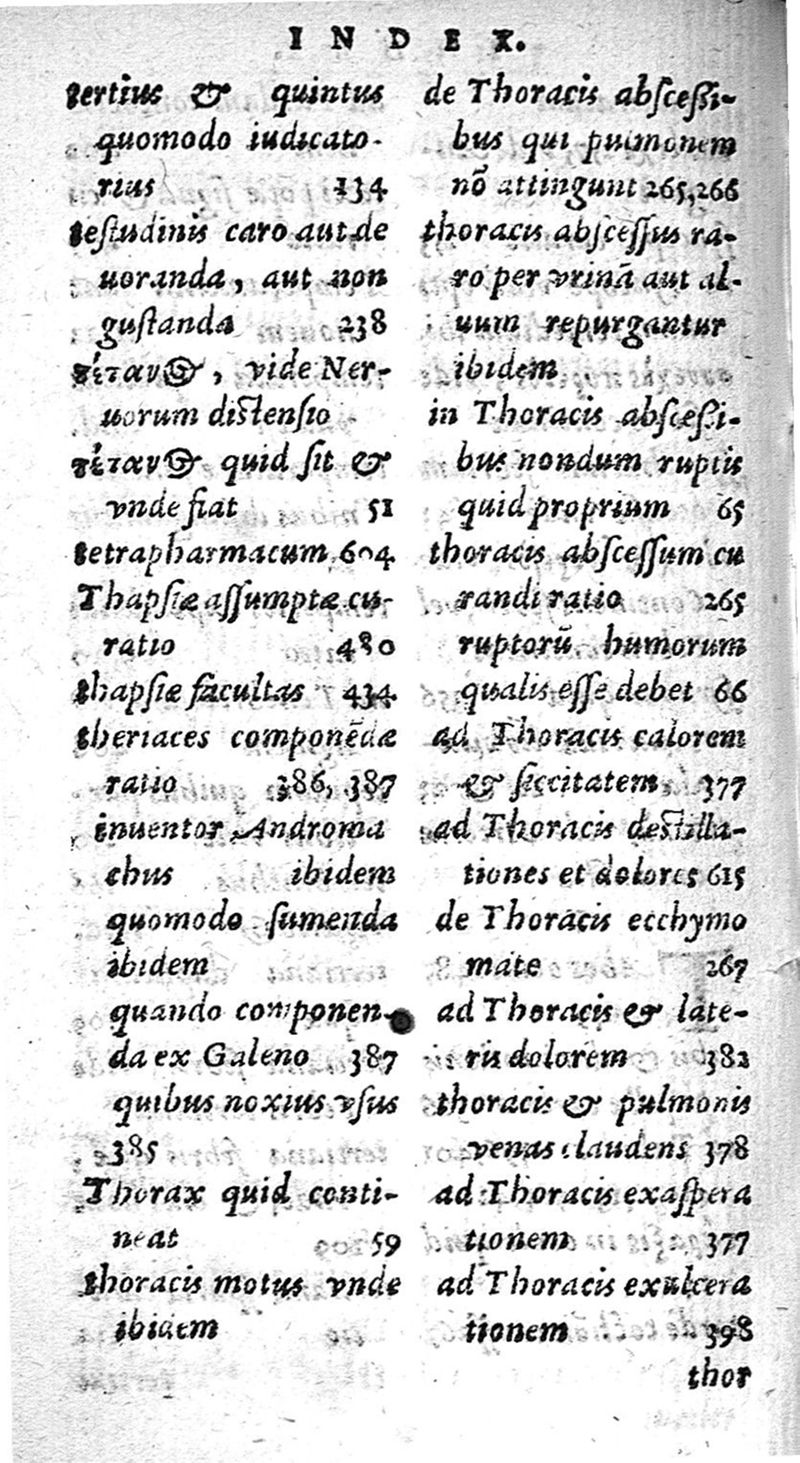 INDEX.
tertius & quintus
quomodo iudicato-
rius 134
teſtudinis caro aut de
uoranda, aut non
guſtanda 238
τέτανος, vide Ner-
uorum diſtenſio
τέτανος quid ſit &
vnde fiat 51
tetrapharmacum 604
Thapſiæ aſſumptæ cu-
ratio 480
thapſiæ facultas 434
theriaces componēdæ
ratio 386, 387
inuentor Androma
chus ibidem
quomodo ſumenda
ibidem
quando componen-
da ex Galeno 387
quibus noxius vſus
385
Thorax quid conti-
neat 59
thoracis motus vnde
ibidem
de Thoracis abſceſſi-
bus qui pulmonem
nō attingunt 265,266
thoracis abſceſſus ra-
ro per vrinā aut al-
uum repurgantur
ibidem
in Thoracis abſceſſi-
bus nondum ruptis
quid proprium 65
thoracis abſceſſum cu
randi ratio 265
ruptorū humorum
qualis eſſe debet 66
ad Thoracis calorem
& ſiccitatem 377
ad Thoracis deſtilla-
tiones et dolores 615
de Thoracis ecchymo
mate 267
ad Thoracis & late-
ris dolorem 382
thoracis & pulmonis
venas claudens 378
ad Thoracis exaſpera
tionem 377
ad Thoracis exulcera
tionem 398
thor